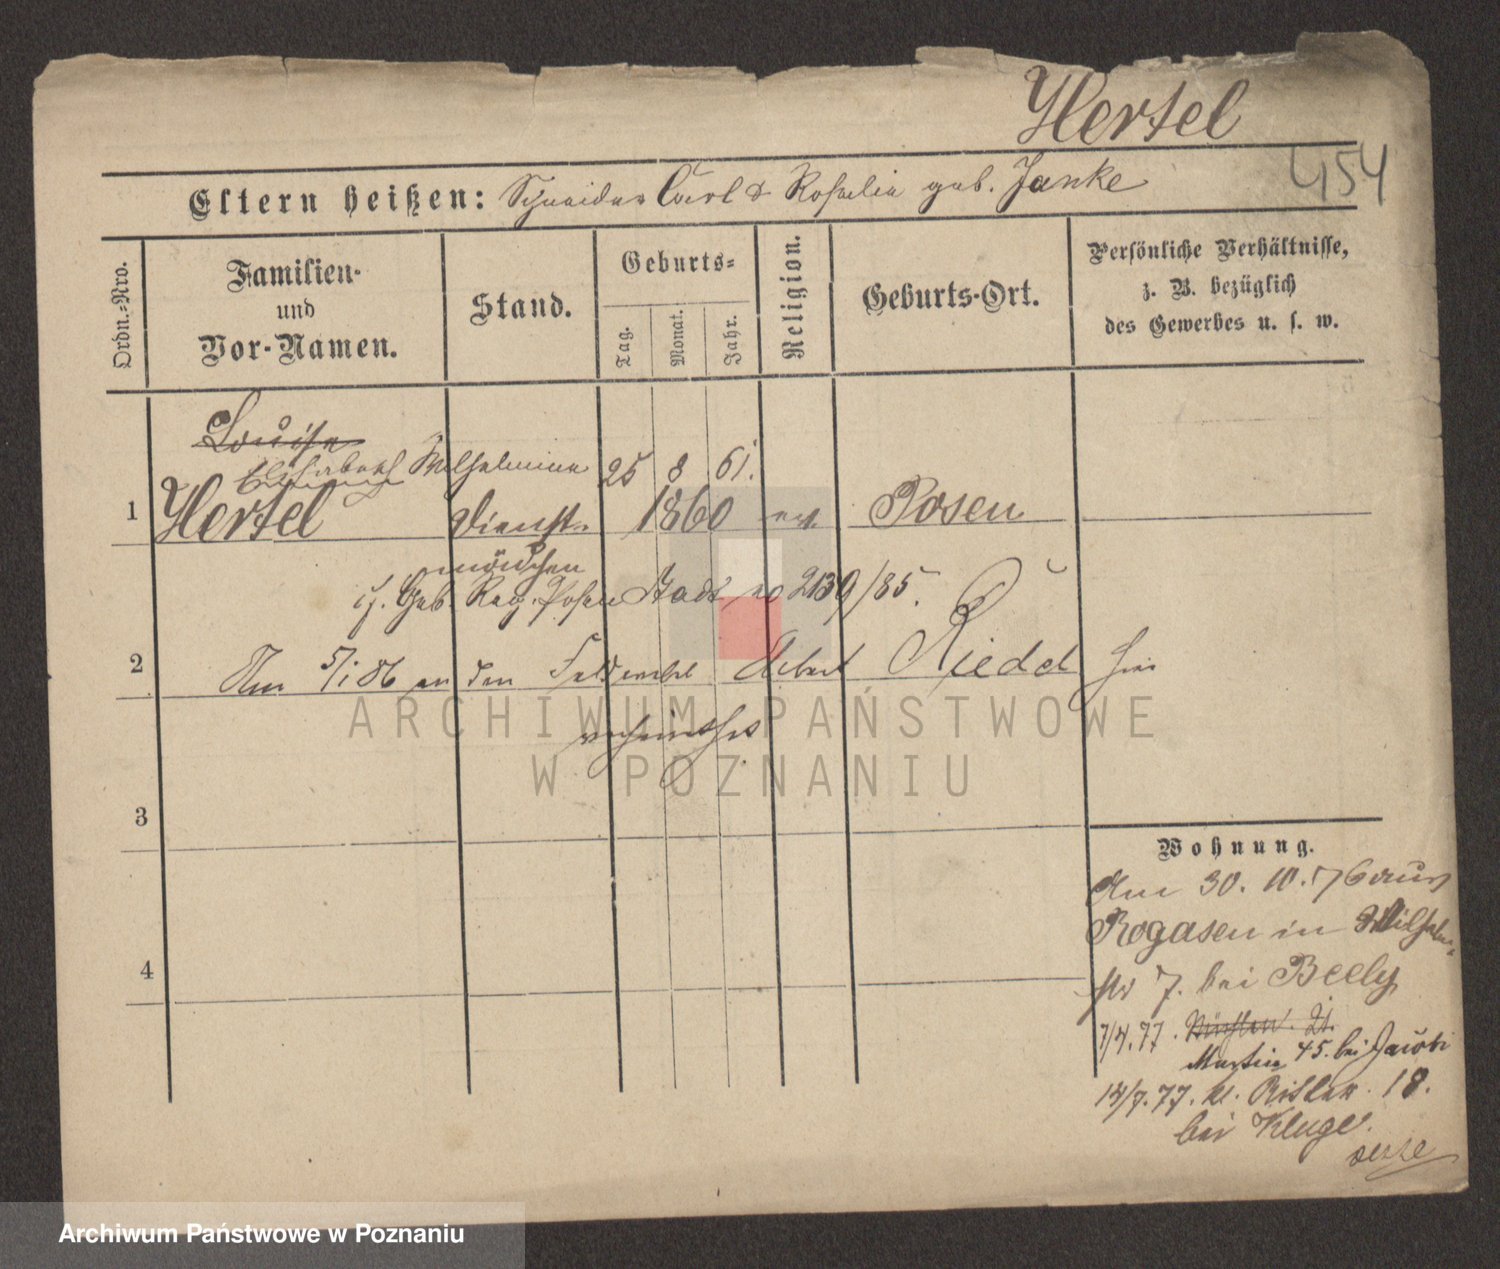 Hertel
454
Eltern heißen: Schneider Carl & Rosalie geb. Janke
Ordn.-Nro.
Familien-
und
Vor-Namen.
Stand.
Geburts-
Tag.
Monat.
Jahr.
Religion.
Geburts-Ort.
Persönliche Verhältnisse,
z. B. bezüglich
des Gewerbes u. s. w.
Louise
Elisabeth Wilhelmine 25 8 61.
1 Hertel Dienst- 1860 ev. Posen
mädchen
Geb. Reg. Posen Stadt no 2139/85.
2 Am 5/1 86 an den Feldwebel Albert Riedel hier
verheirathet
3
4
Wohnung.
Am 30. 10. 76 aus
Rogasen in Wilhelm-
str 7. bei Beely
7/4. 77.
Martin 45. bei Jacobi
14/7. 77. kl. Ritter 18.
bei Kluge.
ARCHIWUM PAŃSTWOWE
W POZNANIU
Archiwum Państwowe w Poznaniu